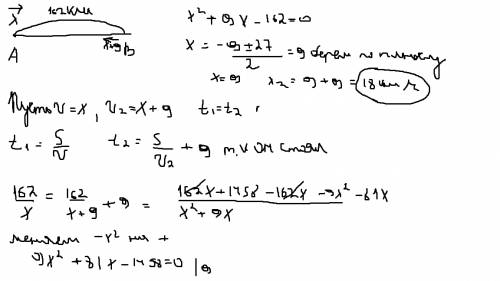 162 км
x → x+9
A B
x² + 9x - 162 = 0
x = -9 ± 27 / 2 = 9 берем по плюсу
x = 9 x₂ = 9 + 9 = 18 км/ч
Пусть V = x, V₂ = x + 9 t₁ = t₂
t₁ = S/V t₂ = S/V₂ + 9 т.к он стоял
162/x = 162/x+9 + 9 = 162x + 1458 - 162x - 9x² - 81x / x² + 9x
меняем -x² на +
9x² + 81x - 1458 = 0 | 9